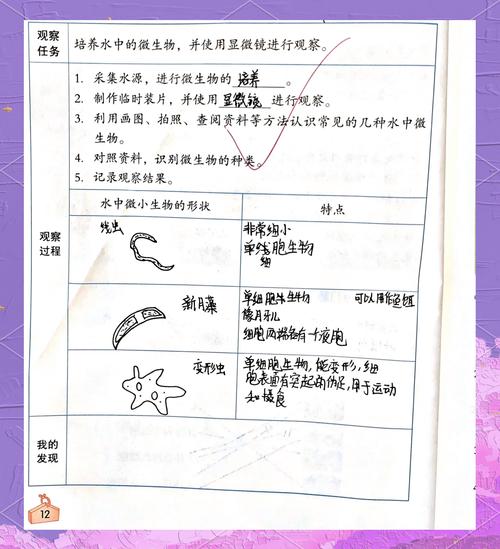 观察任务
培养水中的微生物，并使用显微镜进行观察。
观察过程
1. 采集水源，进行微生物的 培养 。
2. 制作临时装片，并使用 显微镜 进行观察。
3. 利用画图、拍照、查阅资料等方法认识常见的几种水中微
生物。
4. 对照资料，识别微生物的种类。
5. 记录观察结果。
水中微小生物的形状 特点
线虫
非常细小
单线胞生物
细
新月藻
单细胞生物 可以用作鱼饵
像月牙儿
细胞两端各有一个液胞
变形虫
单细胞生物，能变形，细
胞表面有突起的伪足，用于运动
和摄食
我的发现
12